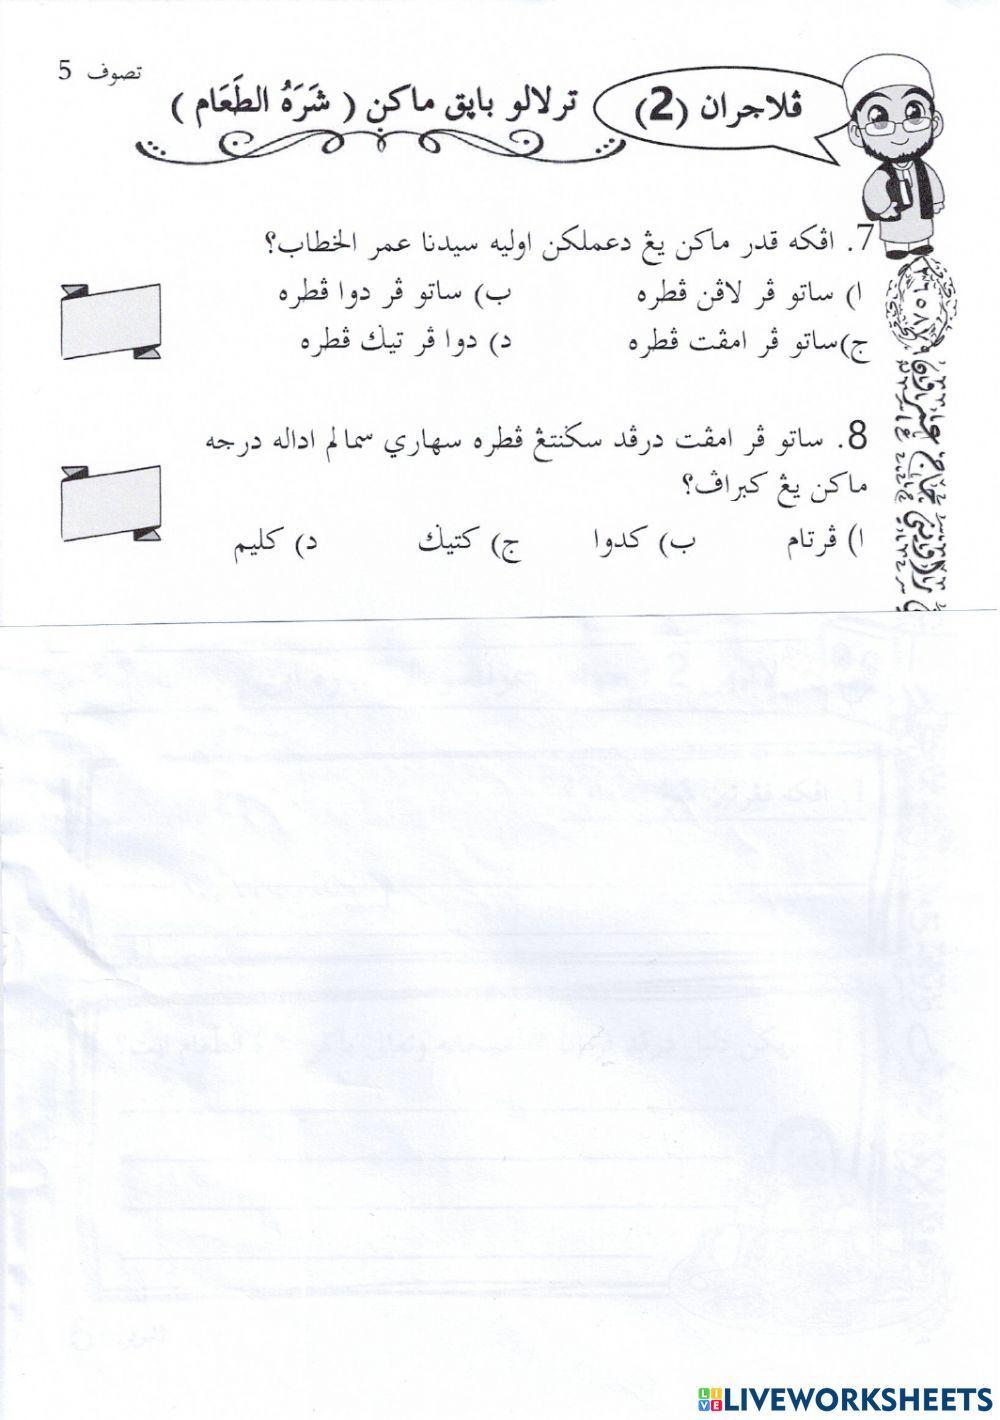 تصوف 5
ڤلاجران (2)
ترلالو باپق ماكن ( شَرَهُ الطَعَام )
7. اڤكه قدر ماكن يڠ دعملكن اوليه سيدنا عمر الخطاب؟
ا) ساتو ڤر لاڤن ڤطره
ب) ساتو ڤر دوا ڤطره
ج)ساتو ڤر امڤت ڤطره
د) دوا ڤر تيݢ ڤطره
8. ساتو ڤر امڤت درڤد سݢنتڠ ڤطره سهاري سمالم اداله درجه
ماكن يڠ كبراڤ؟
ا) ڤرتام
ب) كدوا
ج) كتيݢ
د) كليم
LIVEWORKSHEETS